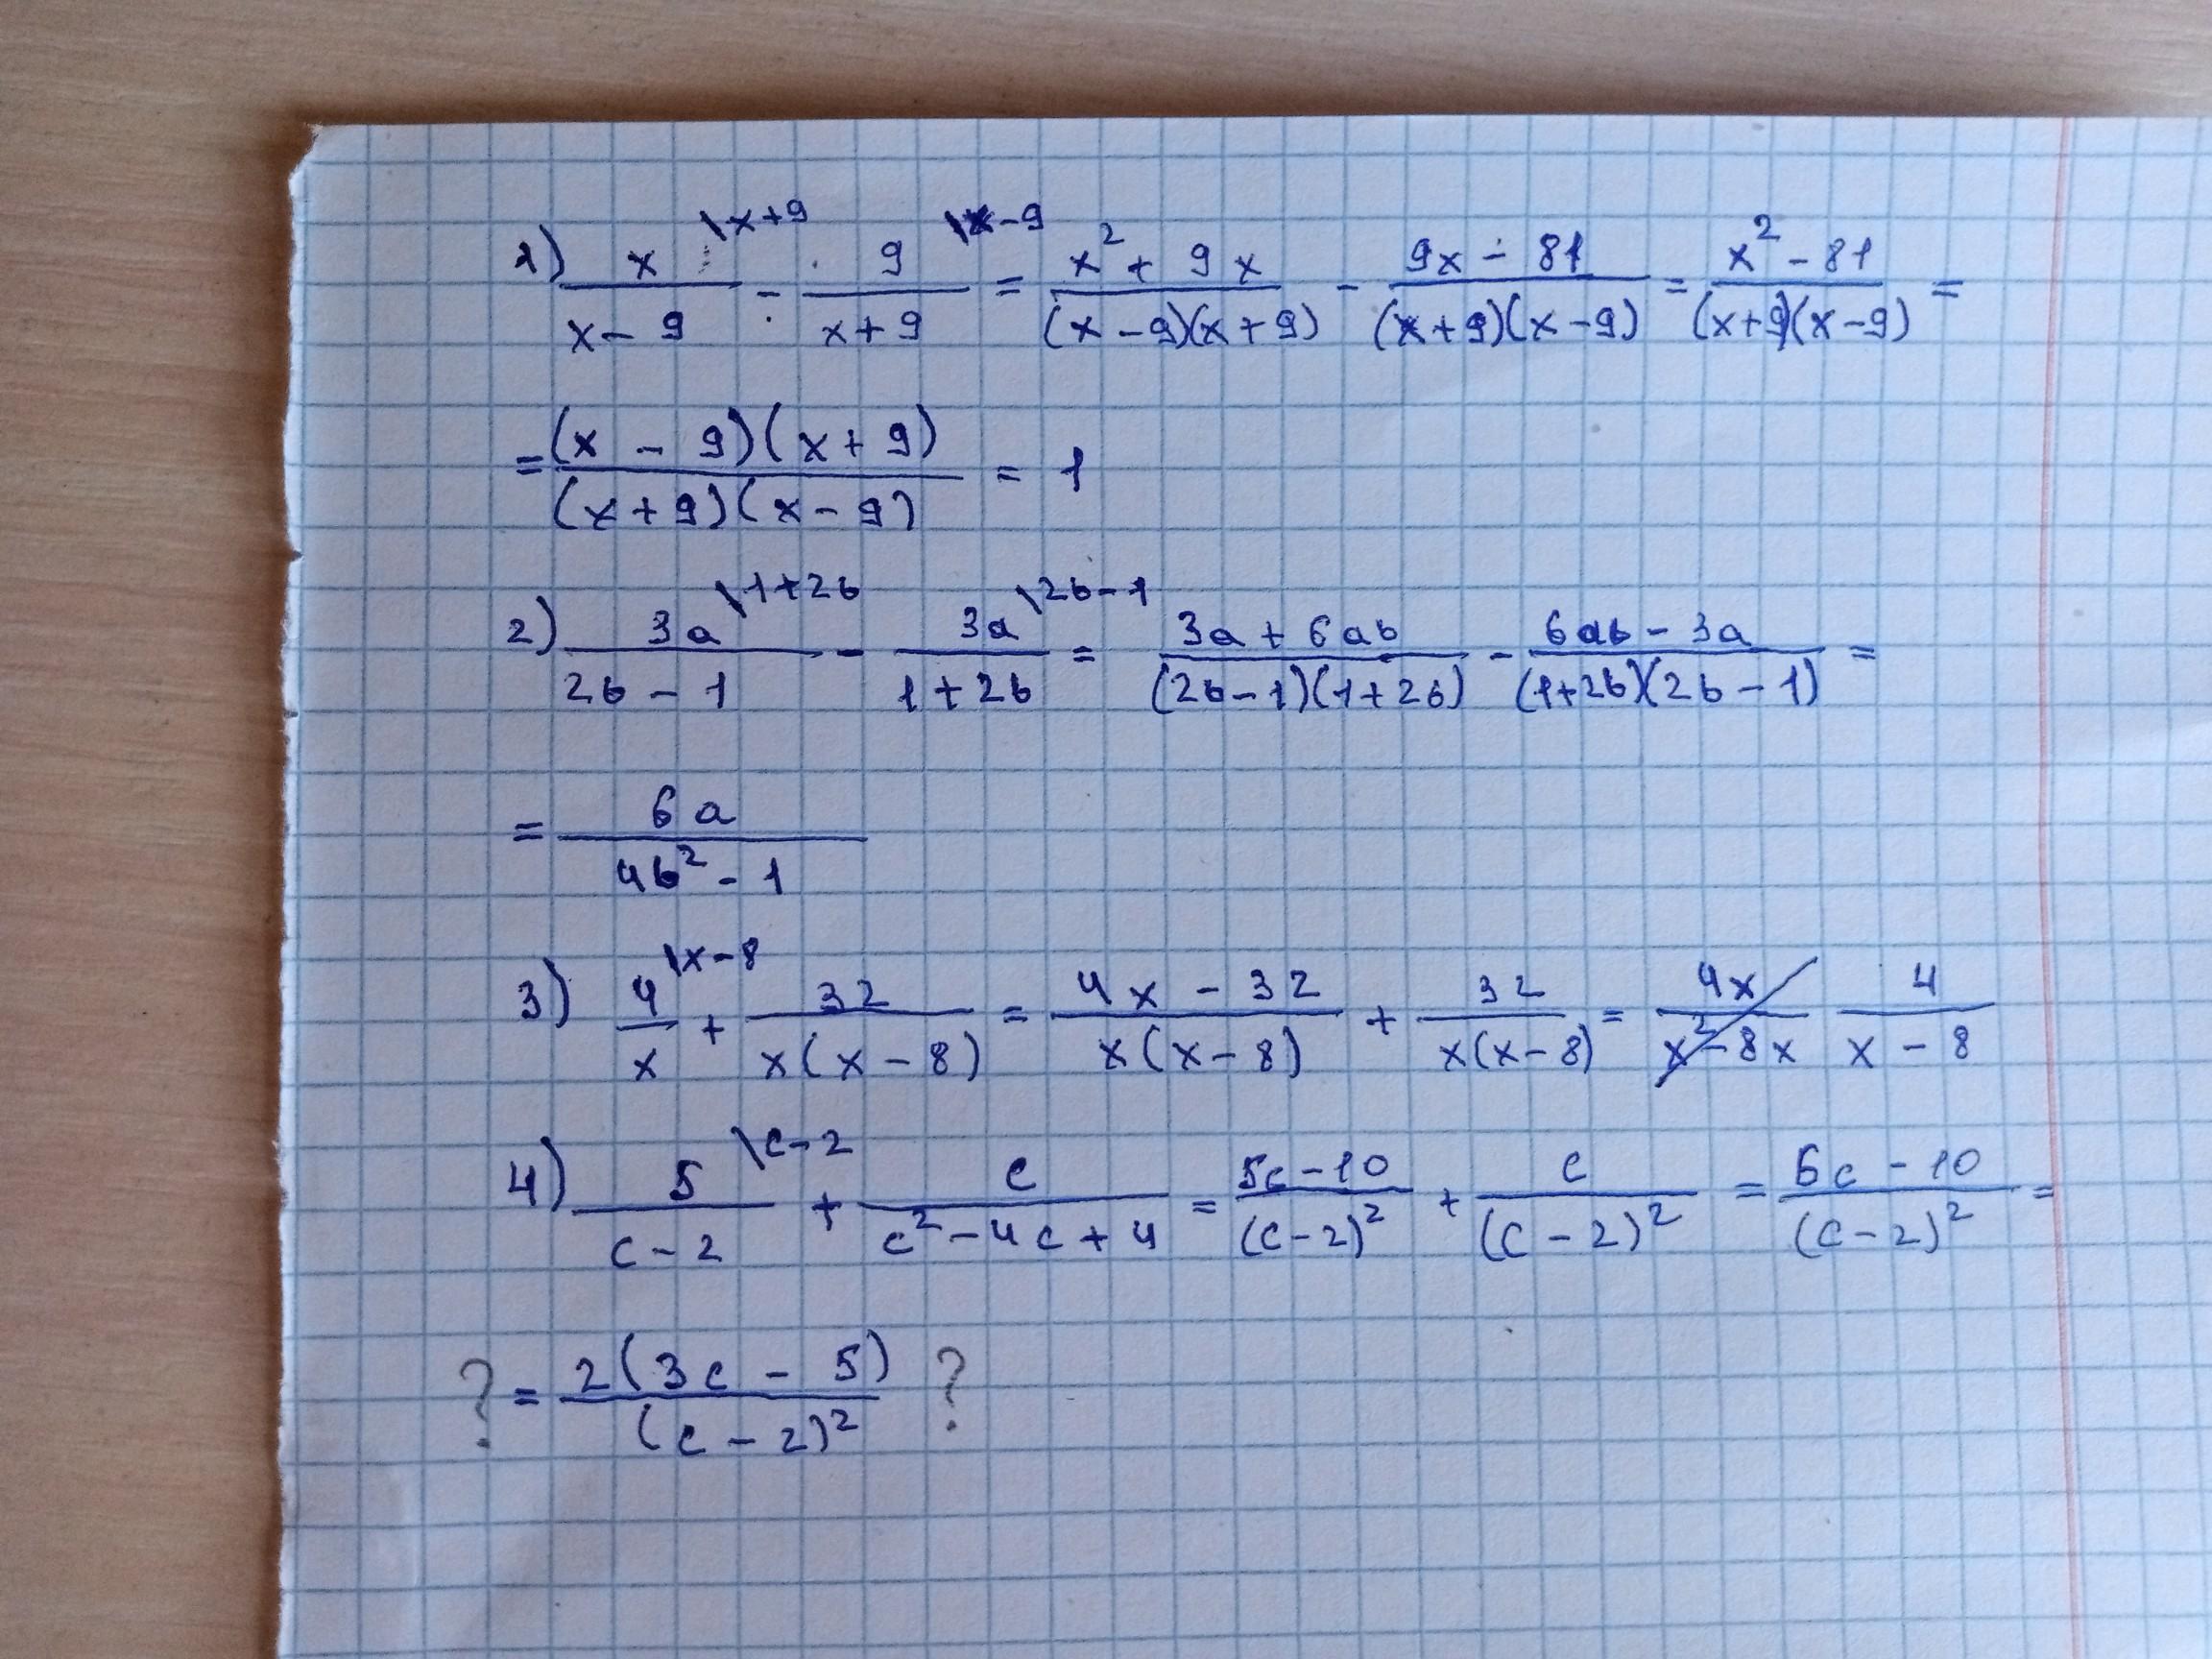 1) x/(x-9) \x+9 - 9/(x+9) \x-9 = (x² + 9x)/((x-9)(x+9)) - (9x - 81)/((x+9)(x-9)) = (x² - 81)/((x+9)(x-9)) =
= ((x - 9)(x + 9))/((x+9)(x-9)) = 1
2) 3a/(2b - 1) \1+2b - 3a/(1+2b) \2b-1 = (3a + 6ab)/((2b-1)(1+2b)) - (6ab - 3a)/((1+2b)(2b-1)) =
= 6a/(4b² - 1)
3) 4/x \x-8 + 32/(x(x-8)) = (4x - 32)/(x(x-8)) + 32/(x(x-8)) = 4x/(x²-8x) 4/(x-8)
4) 5/(c-2) \c-2 + c/(c²-4c+4) = (5c-10)/(c-2)² + c/(c-2)² = (6c-10)/(c-2)² =
? = 2(3c - 5)/(c-2)² ?